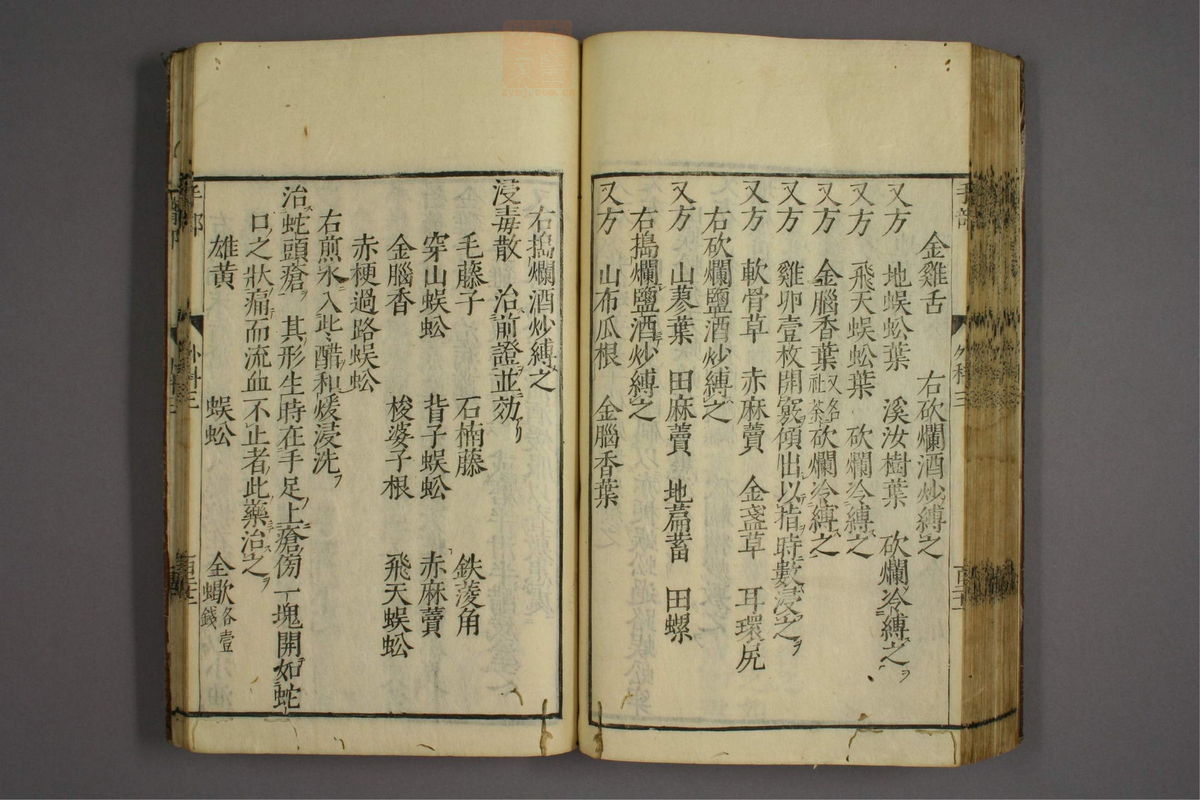 金雞舌　右砍爛酒炒縛之
又方　地蜈蚣葉　溪汝樹葉　砍爛冷縛之
又方　飛天蜈蚣葉　砍爛冷縛之
又方　金腦香葉又名社茶砍爛冷縛之
又方　雞卵壹枚開竅傾出以指時數浸之
又方　軟骨草　赤麻藚　金盞草　耳環尻
右砍爛鹽酒炒縛之
又方　山蓼葉　田麻藚　地萹蓄　田螺
右搗爛鹽酒炒縛之
又方　山布瓜根　金腦香葉
右搗爛酒炒縛之
浸毒散　治前證並効
毛藤子　石楠藤　鉄菱角
穿山蜈蚣　背子蜈蚣　赤麻藚
金腦香　梭婆子根　飛天蜈蚣
赤梗過路蜈蚣
右煎水入此醋和煖浸洗
治蛇頭瘡　其形生時在手足上瘡傍一塊開如蛇
口之狀痛而流血不止者此藥治之
雄黃　蜈蚣　全蝎各壹錢
手部　外科三